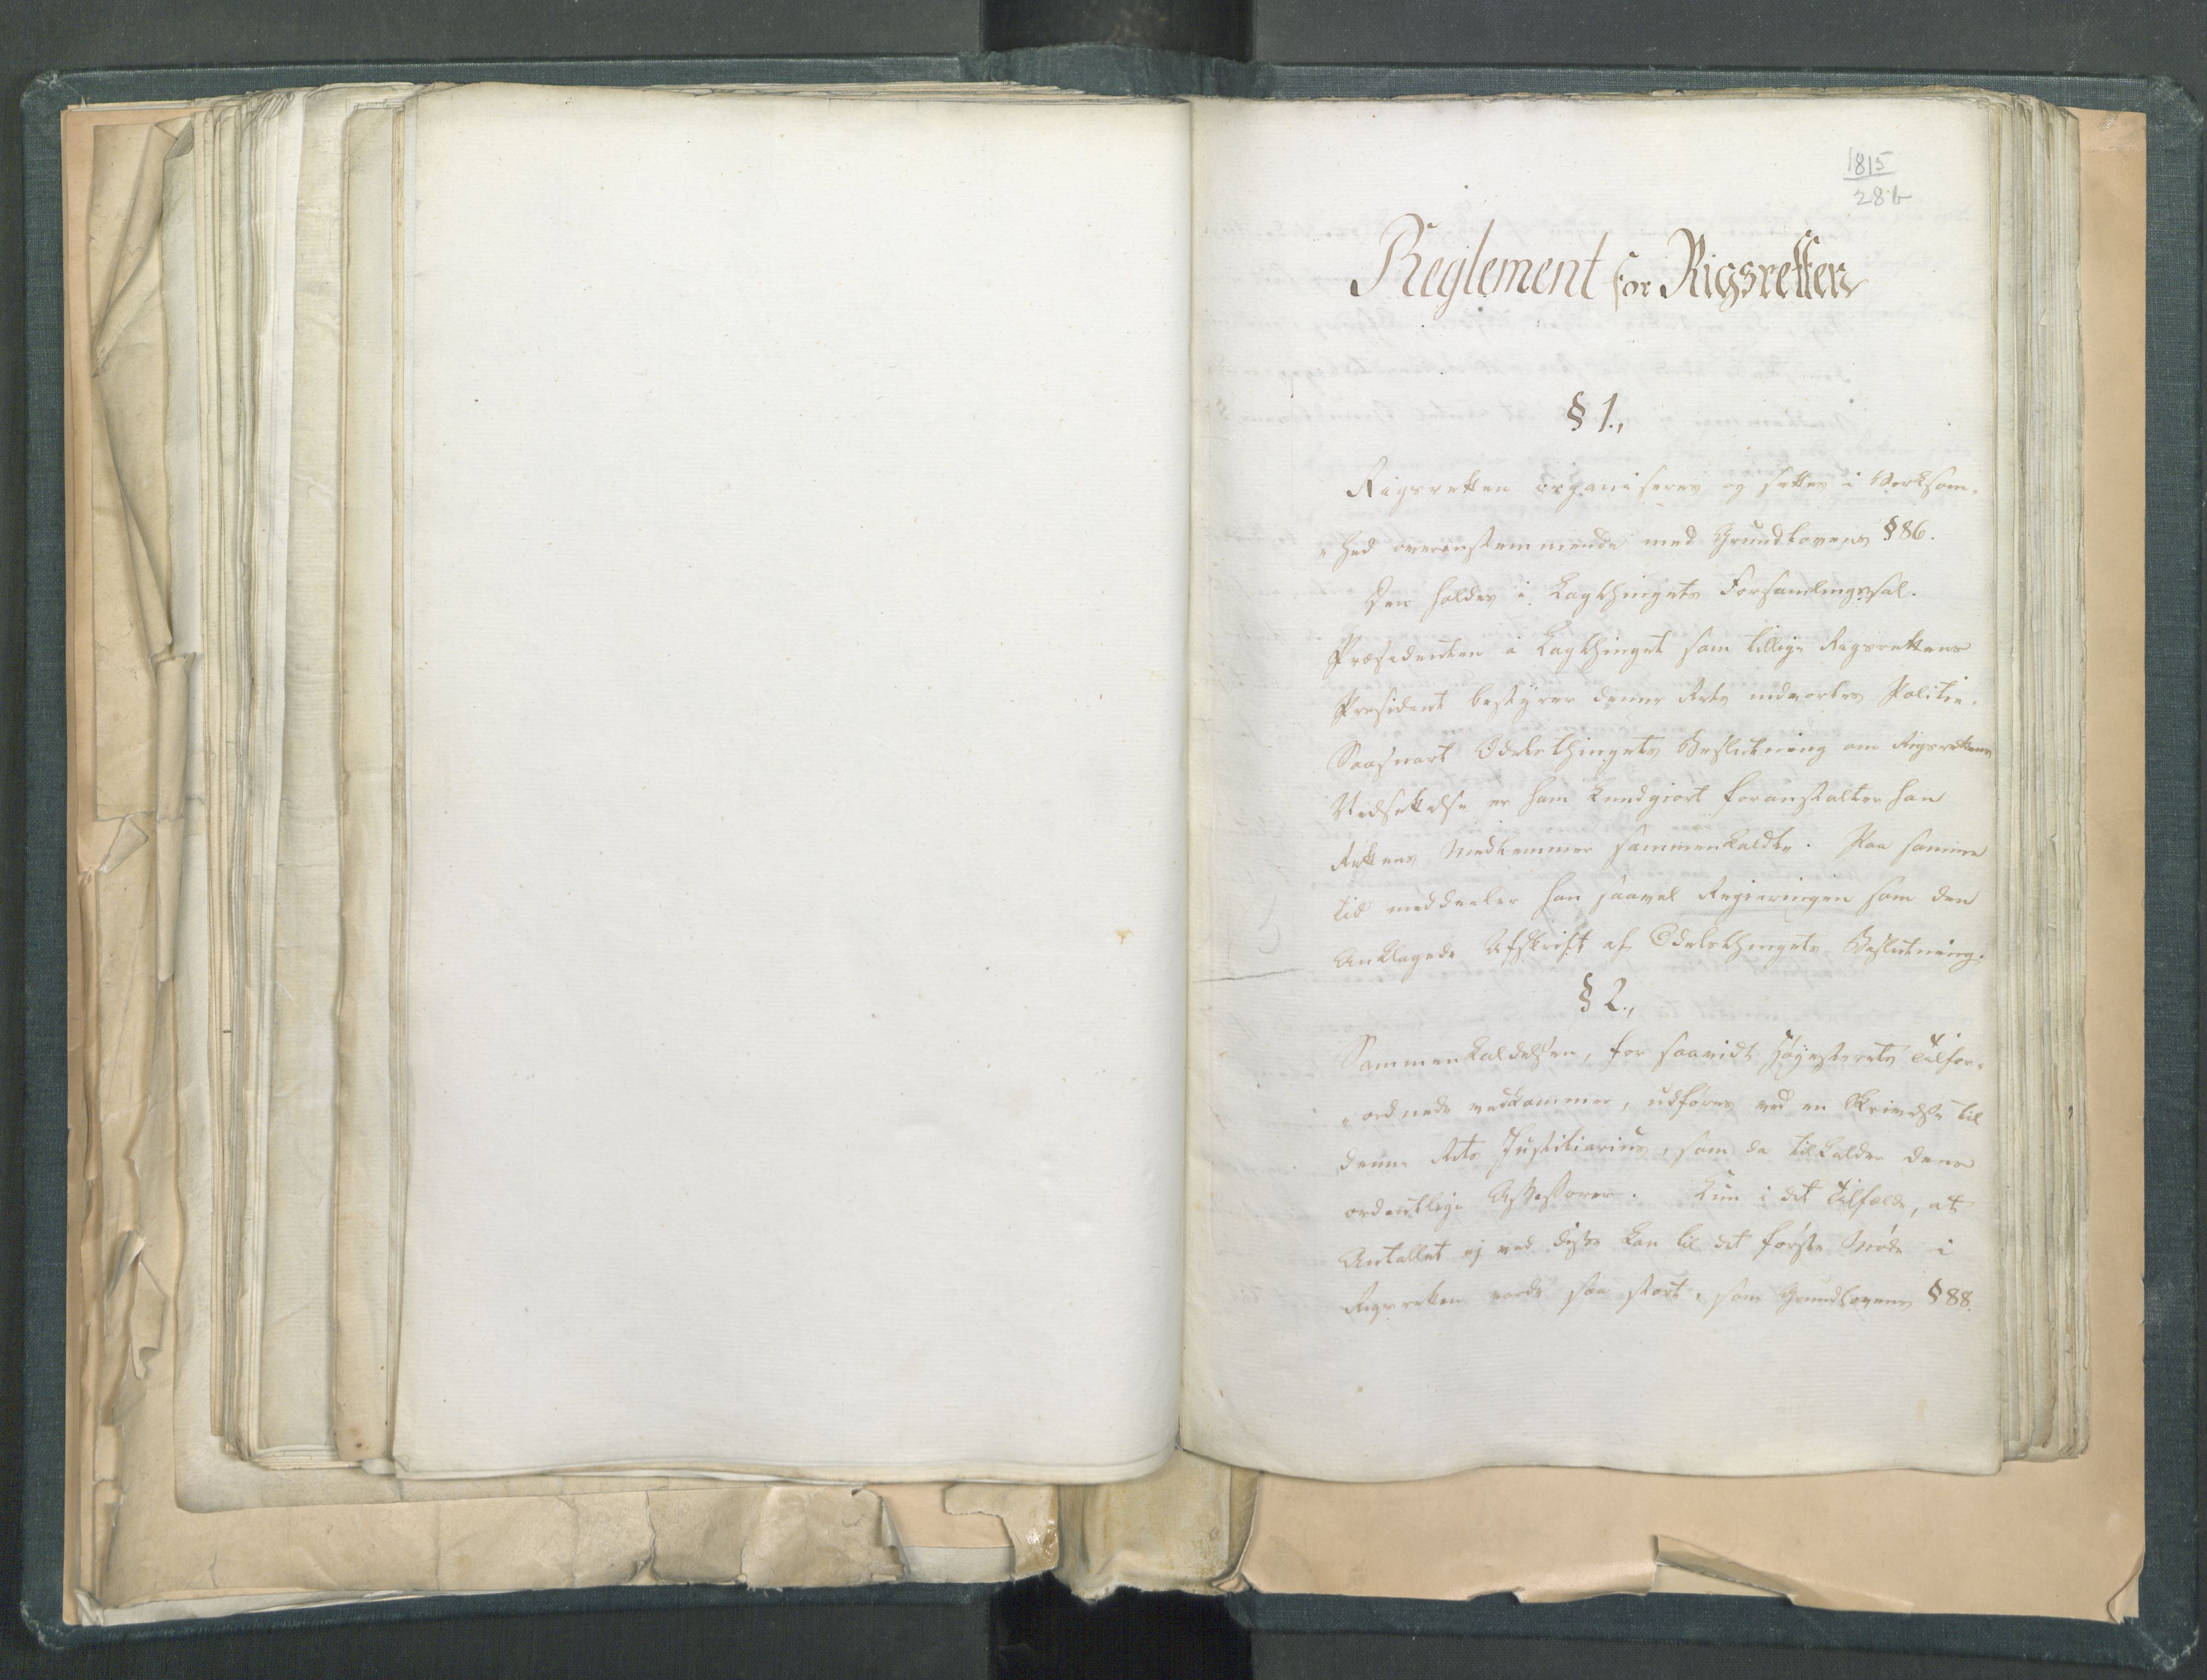 1815
28b
Reglement for Rigsretten
§ 1.,
Rigsretten organiseres og settes i Verksom-
-hed overenstemmende med Grundlovens § 86.
Den holdes i Lagthingets Forsamlingssal.
Præsidenten i Lagthinget som tillige Rigsrettens
Præsident bestyrer denne Rets indvortes Politie.
Saasnart Odelsthingets Beslutning om Rigsrettens
Nedsettelse er ham kundgiort foranstalter han
Rettens Medlemmer sammenkaldte. Paa samme
tid meddeeler han saavel Regieringen som den
Anklagede Afskrift af Odelsthingets Beslutning.
§ 2.,
Sammenkaldelsen, for saavidt Høyesterets Tilfor-
-ordnede vedkommer, udføres ved en Skrivelse til
denne Rets Justitiarius, som da tilkalder dens
ordentlige Assessorer. Kun i det Tilfælde, at
Antallet ej ved disse kan til det første Møde i
Rigsretten vorde saa stort, som Grundlovens § 88.